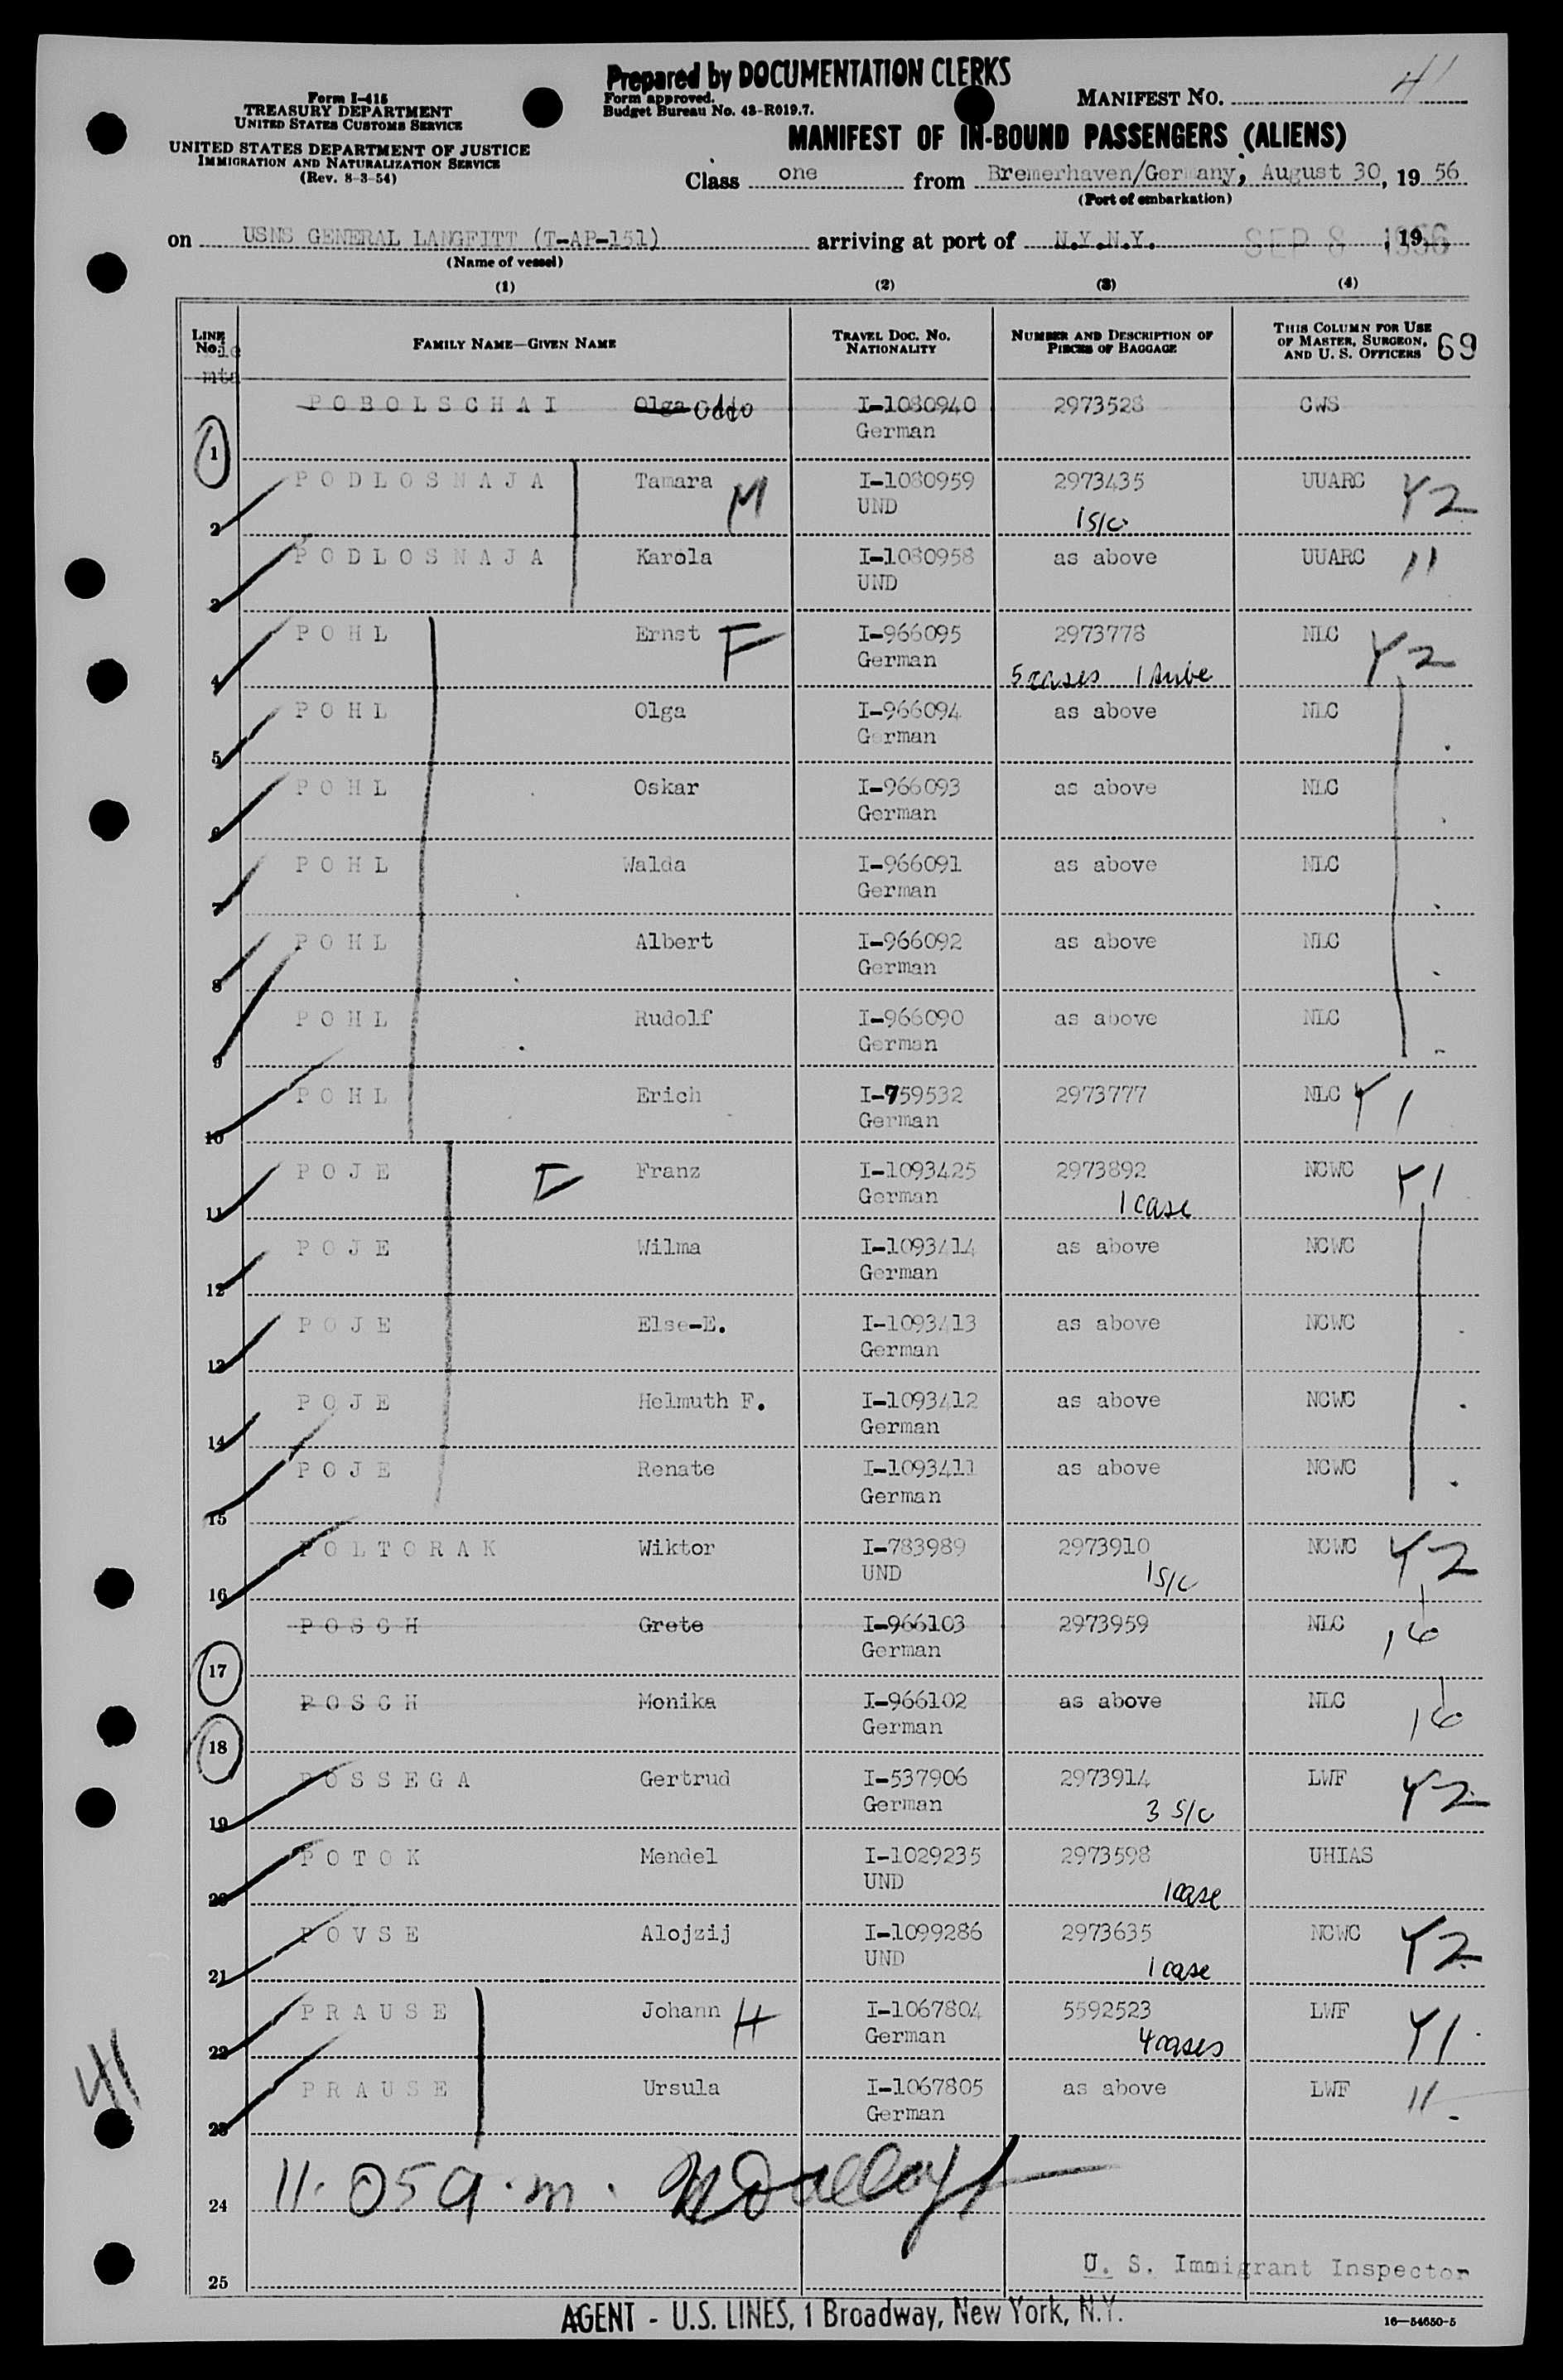 Prepared by DOCUMENTATION CLERKS
Form I-415
TREASURY DEPARTMENT
UNITED STATES CUSTOMS SERVICE
UNITED STATES DEPARTMENT OF JUSTICE
IMMIGRATION AND NATURALIZATION SERVICE
(Rev. 8-3-54)
Form approved.
Budget Bureau No. 43-R019.7.
MANIFEST NO. 41
MANIFEST OF IN-BOUND PASSENGERS (ALIENS)
Class one from Bremerhaven/Germany, August 30, 19 56
(Port of embarkation)
on USNS GENERAL LANGFITT (T-AP-151) arriving at port of N.Y.N.Y. SEP 8 1956, 19
(Name of vessel)
(1) (2) (3) (4)
LINE No. FAMILY NAME—GIVEN NAME TRAVEL DOC. NO. NATIONALITY NUMBER AND DESCRIPTION OF PIECES OF BAGGAGE THIS COLUMN FOR USE OF MASTER, SURGEON, AND U. S. OFFICERS 69
1 POBOLSCHAI Olga I-1080940 2973528 CWS
German
2 PODLOSNAJA Tamara M I-1080959 2973435 UUARC Y2
UND 1 s/c
3 PODLOSNAJA Karola I-1080958 as above UUARC 11
UND
4 POHL Ernst F I-966095 2973778 NLC Y2
German 5 cases
5 POHL Olga I-966094 as above NLC
German
6 POHL Oskar I-966093 as above NLC
German
7 POHL Walda I-966091 as above NLC
German
8 POHL Albert I-966092 as above NLC
German
9 POHL Rudolf I-966090 as above NLC
German
10 POHL Erich I-759532 2973777 NLC Y1
German
11 POJE F Franz I-1093425 2973892 NCWC Y1
German 1 case
12 POJE Wilma I-1093414 as above NCWC
German
13 POJE Else-E. I-1093413 as above NCWC
German
14 POJE Helmuth F. I-1093412 as above NCWC
German
15 POJE Renate I-1093411 as above NCWC
German
16 POLTORAK Wiktor I-783989 2973910 NCWC Y2
UND 1 s/c
17 POSCH Grete I-966103 2973959 NLC 16
German
18 POSCH Monika I-966102 as above NLC 16
German
19 POSSEGA Gertrud I-537906 2973914 LWF Y2
German 3 s/c
20 POTOK Mendel I-1029235 2973598 UHIAS
UND 1 case
21 POVSE Alojzij I-1099286 2973635 NCWC Y2
UND 1 case
22 PRAUSE Johann H I-1067804 5592523 LWF Y1
German 4 cases
23 PRAUSE Ursula I-1067805 as above LWF 11
German
41
24 11.05 a.m.
25 U. S. Immigrant Inspector
AGENT - U.S. LINES, 1 Broadway, New York, N.Y.
16—54650-5